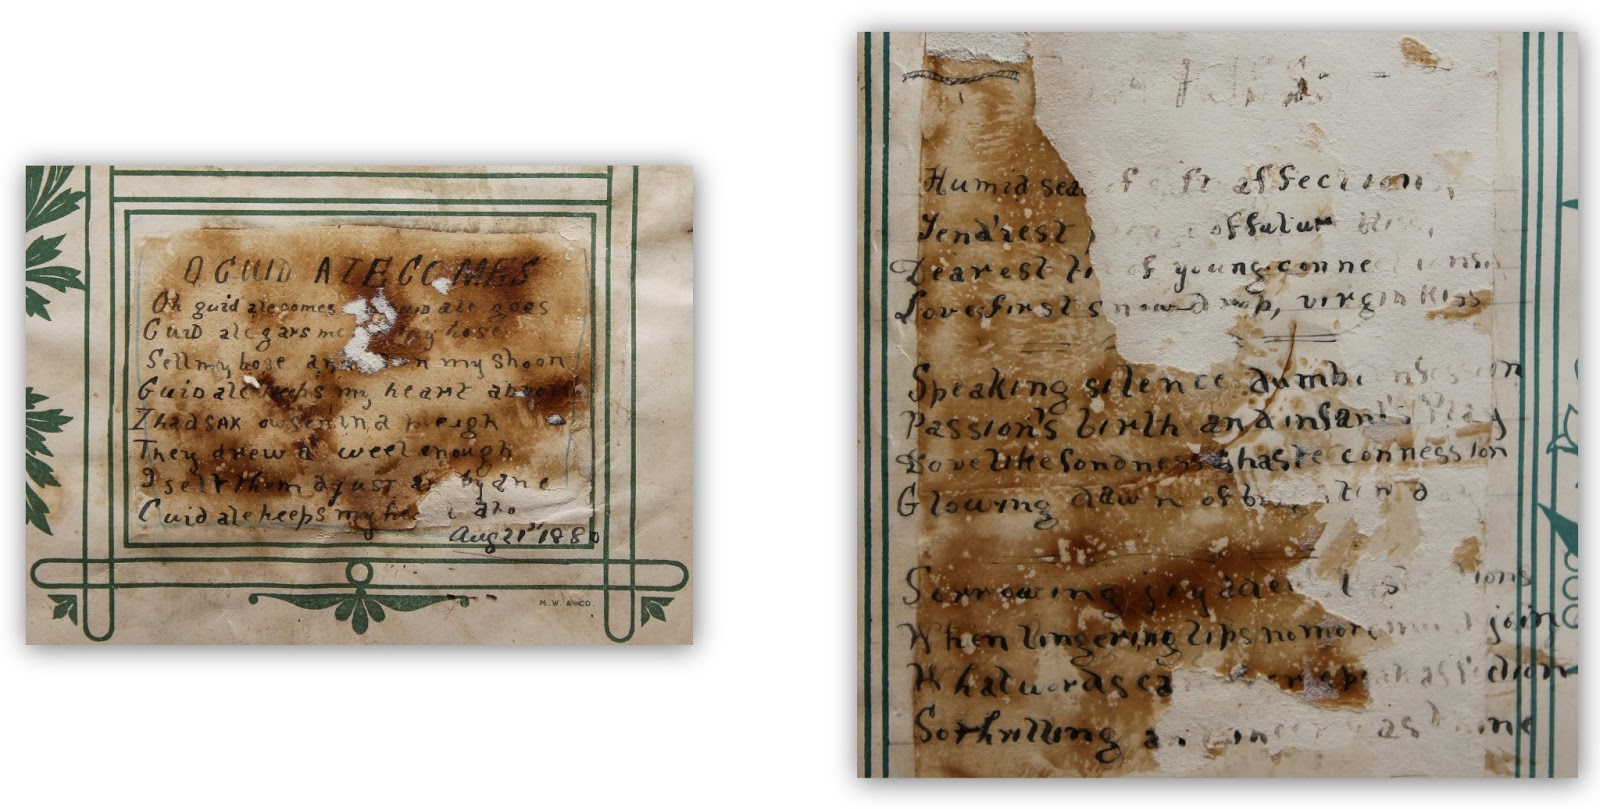 O GUID ALE COMES
Oh guid ale comes guid ale goes
Guid ale gars me my hose
Sell my hose and my shoon
Guid ale keeps my heart
I had sax owsen in a pleugh
They drew a weel enough
I sell them a just ane by ane
Guid ale keeps my
Aug 21st 188
M.W. & CO.
Humid seal of soft affections,
Tend'rest of future bliss,
Dearest tie of young connections
Loves first snow drop, virgin kiss
Speaking silence dumb confession
Passion's birth and infant's play
Dove like fondness chaste connession
Glowing dawn of
Sorrowing joy adieu last
When lingering lips no more must join
What words can ever speak affection
So thrilling and sincere as thine